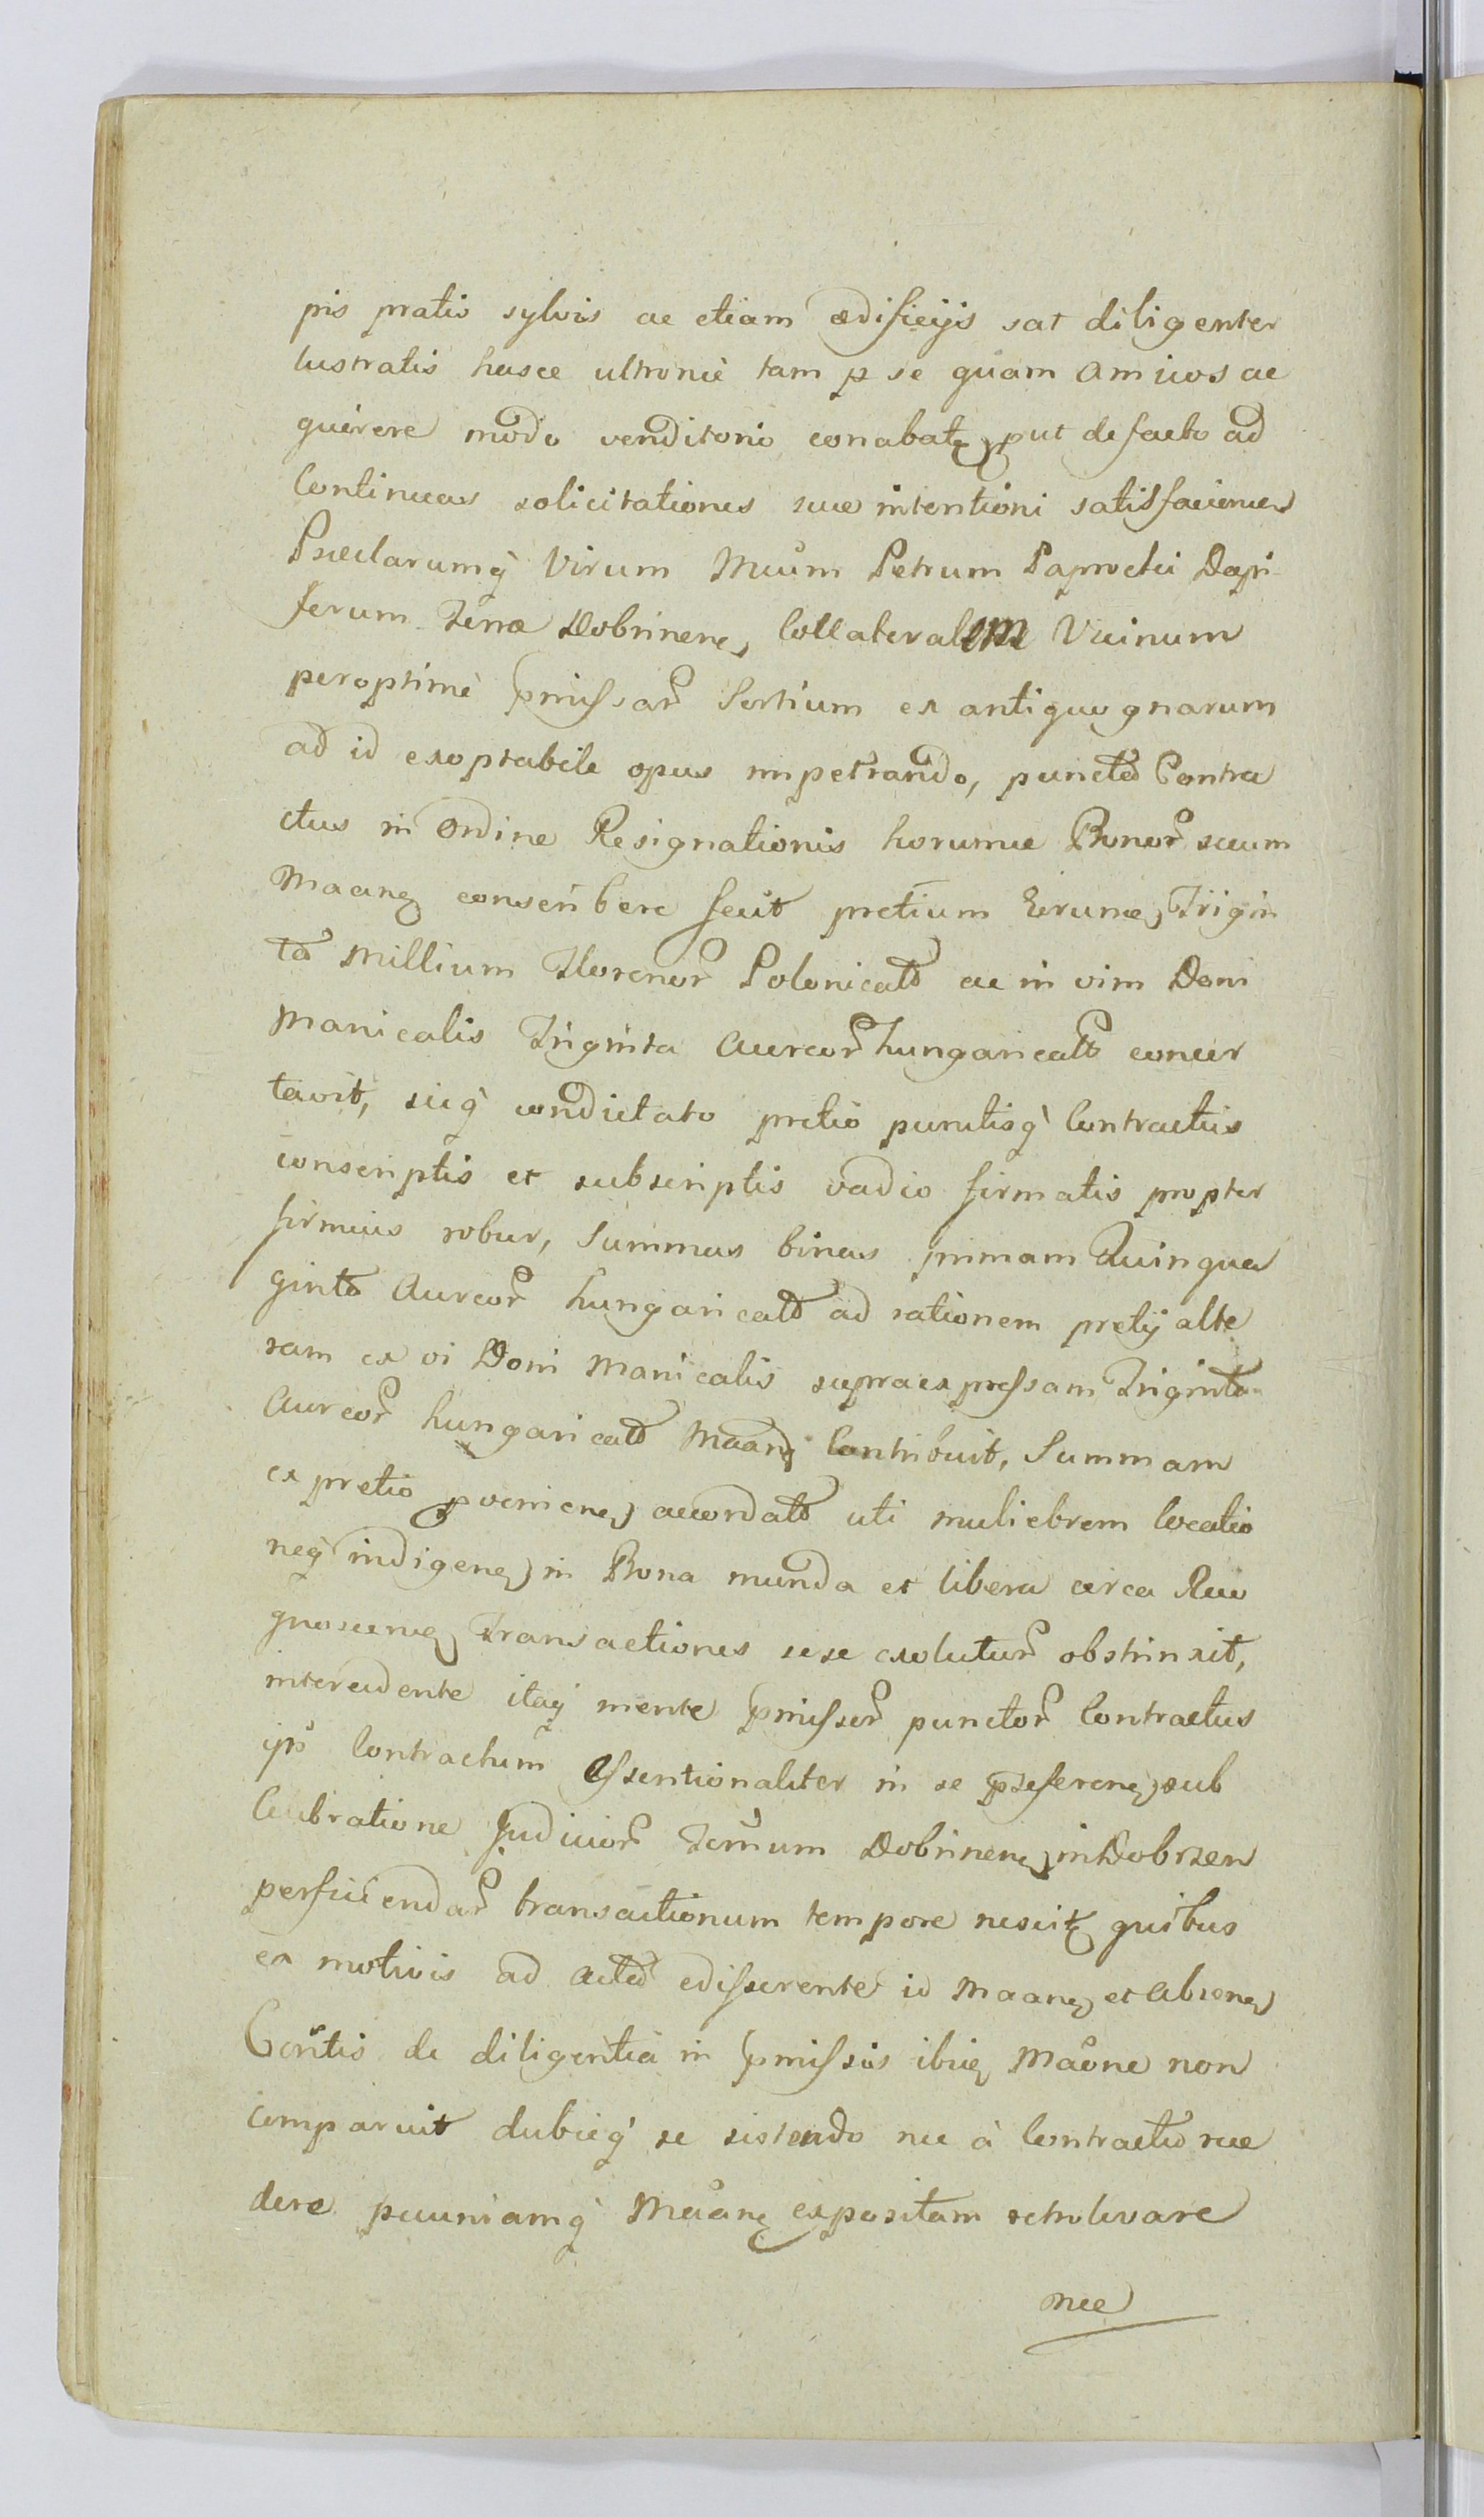 pis pratis sylvis ac etiam ædificijs sat diligenter
lustratis hasce ultroniè tam p se quàm Amicos ac
quirere modo venditorio conabatq put defacto ad
Continuas solicitationes suæ intentioni satisfaciens
Præclarumq Virum Mcum Petrum Paprocki Dapi-
ferum Terræ Dobrinenq Collateralem Vicinum
peroptimè pmissar Sortium ex antiquo gnarum
ad id exoptabile opus impetrando, puncta Contra
ctus in Ordine Resignationis horumce Bonor secum
Maanq conscribere fecit pretium Terrumq Trigin
ta Millium Florenor Polonicali ac in vim Doni
Manicalis Triginta Aureor hungaricali concer
tavit, sicq condictato pretio punctisq Contractus
conscriptis et subscriptis vadio firmatis propter
firmius robur, Summas binas primam Quinqua
ginta Aureor hungaricali ad rationem pretij alte
ram ex vi Doni Manicalis supraexpressam Triginta
Aureor hungaricali Maanq Contribuit, Summam
ex pretio pvenienq accordato uti muliebrem locatio
neq indigenq in Bona munda et libera circa Reco
gnoscenq Transactiones sese exolutur obstrinxit,
intercedente itaq mente pmissor punctor Contractus
ipso Contractum Essentionaliter in se pseferenq sub
Celebratione Judicior Terrium Dobrinenq in Dobrzen
perficiendar transactionum tempore nescitq quibus
ex motivis ad acta edisserente id Maanq et absenq
Contis de diligentia in pmissis ibiq Maone non
comparuit dubieq se sistendo nec à Contractu rece
dere pecuniamq Maanq expositam retrolevare
nec